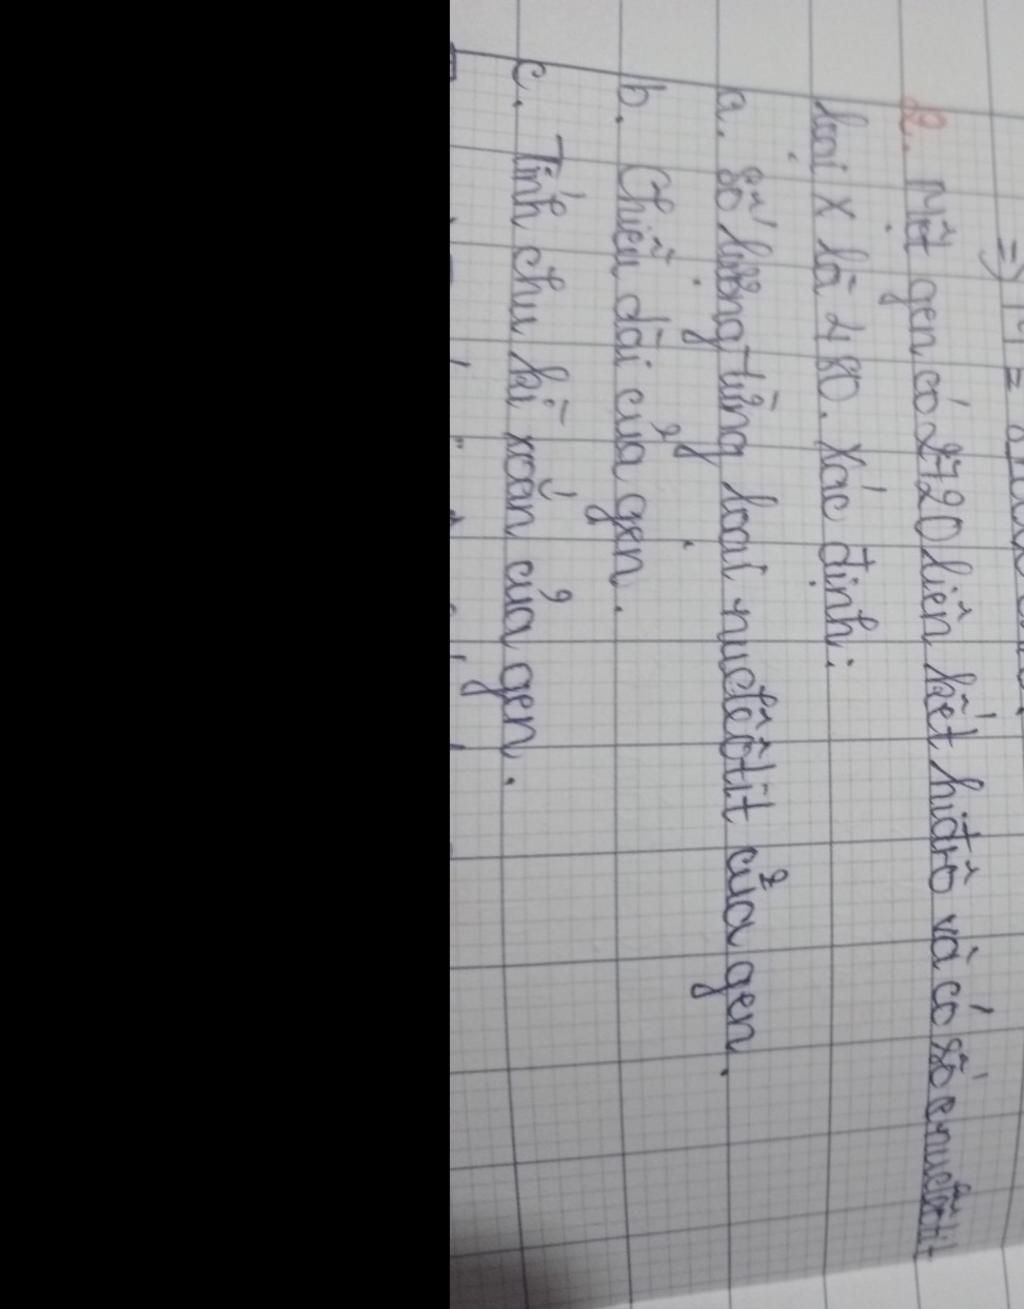 =) M =
2. Một gen có 2720 liên kết hiđrô và có số nuclêôtit
loại X là 480. Xác định:
a. Số lượng từng loại nuclêôtit của gen.
b. Chiều dài của gen.
c. Tính chu kì xoắn của gen.